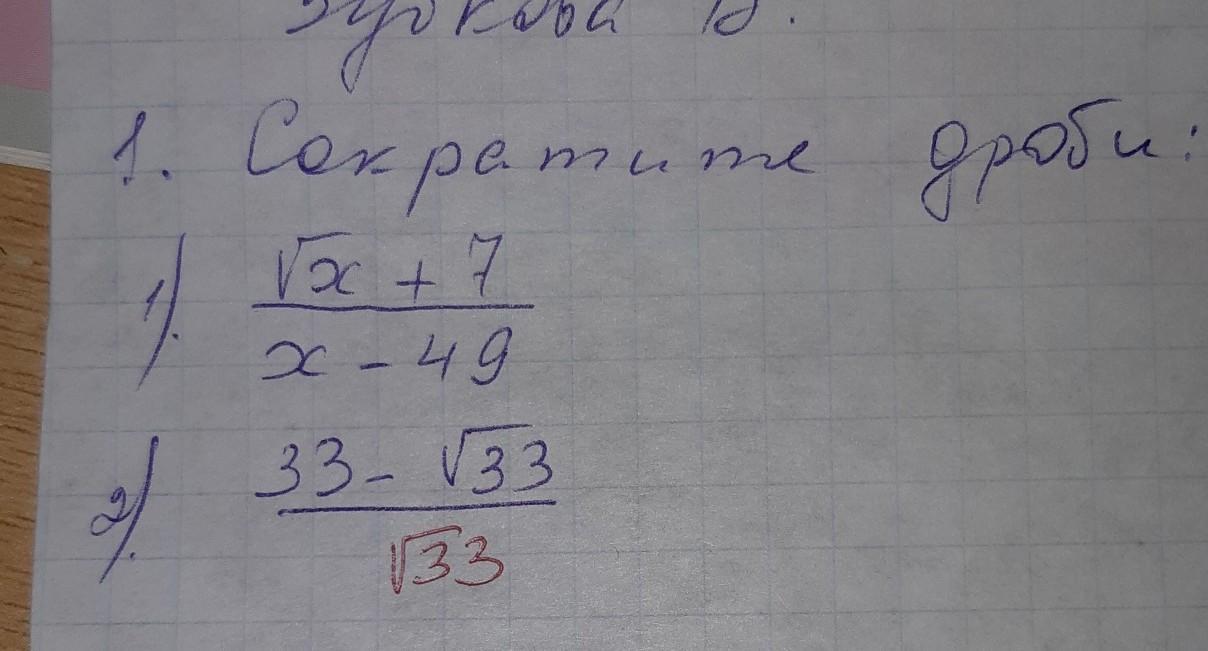 1. Сократите дроби:
1). (√x + 7) / (x - 49)
2). (33 - √33) / √33